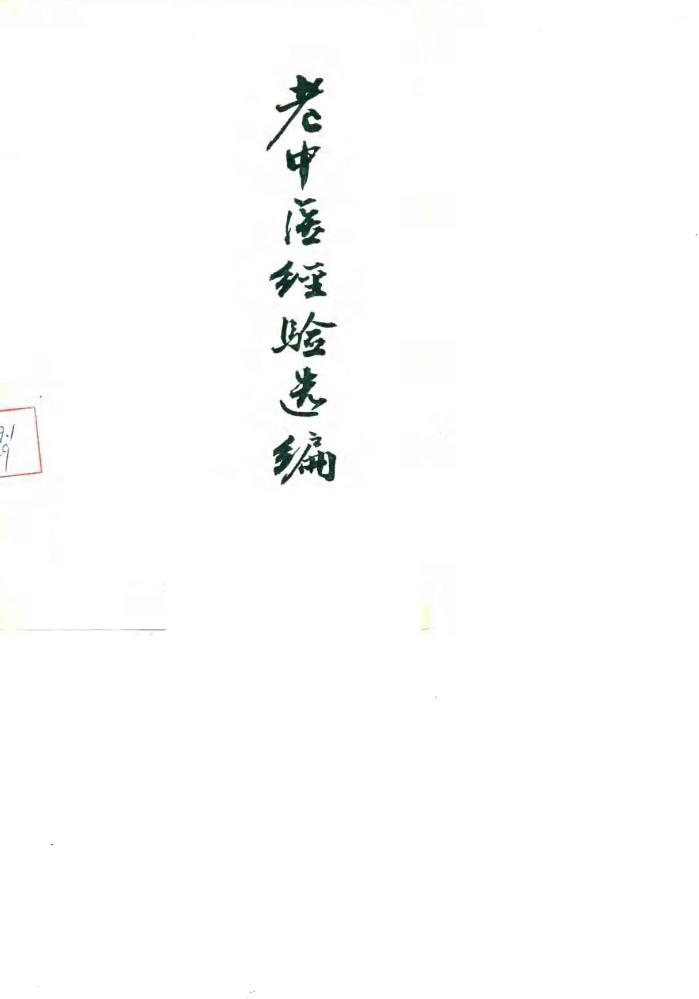 老中医经验选编
9·1
9